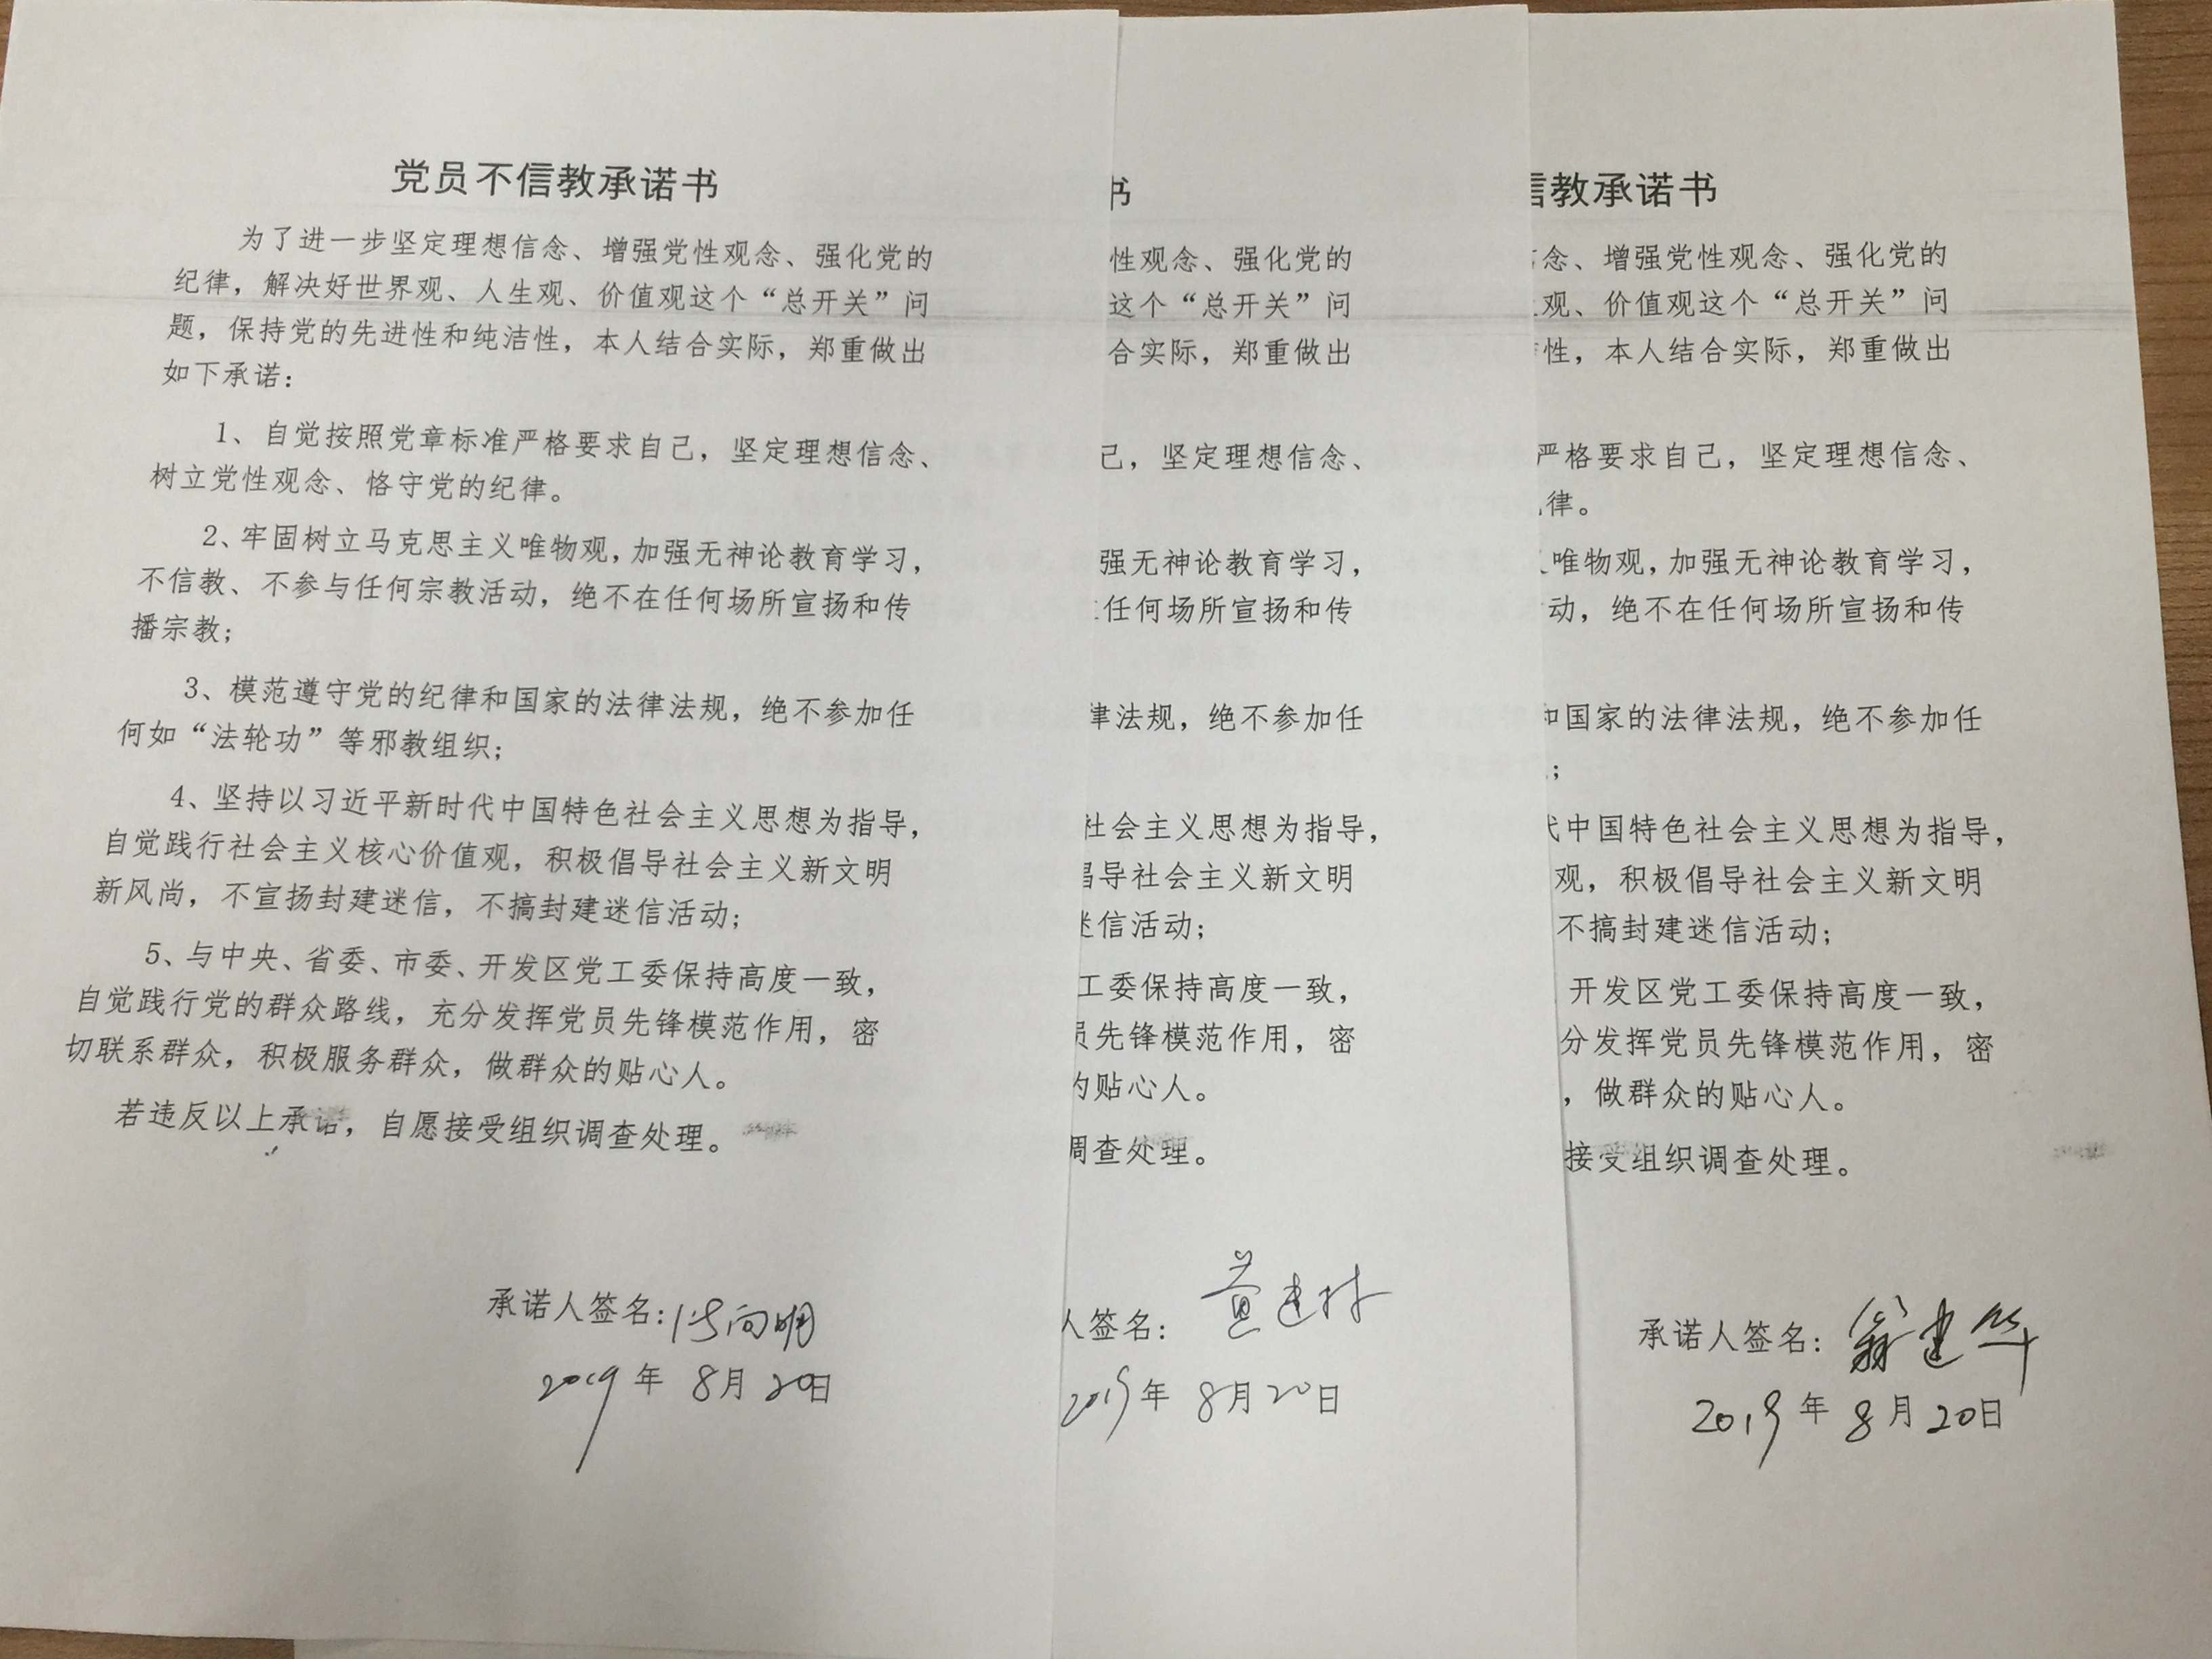 党员不信教承诺书
为了进一步坚定理想信念、增强党性观念、强化党的
纪律，解决好世界观、人生观、价值观这个“总开关”问
题，保持党的先进性和纯洁性，本人结合实际，郑重做出
如下承诺：
1、自觉按照党章标准严格要求自己，坚定理想信念、
树立党性观念、恪守党的纪律。
2、牢固树立马克思主义唯物观，加强无神论教育学习，
不信教、不参与任何宗教活动，绝不在任何场所宣扬和传
播宗教；
3、模范遵守党的纪律和国家的法律法规，绝不参加任
何如“法轮功”等邪教组织；
4、坚持以习近平新时代中国特色社会主义思想为指导，
自觉践行社会主义核心价值观，积极倡导社会主义新文明
新风尚，不宣扬封建迷信，不搞封建迷信活动；
5、与中央、省委、市委、开发区党工委保持高度一致，
自觉践行党的群众路线，充分发挥党员先锋模范作用，密
切联系群众，积极服务群众，做群众的贴心人。
若违反以上承诺，自愿接受组织调查处理。
承诺人签名：向明
2019年 8月20日
书
性观念、强化党的
这个“总开关”问
合实际，郑重做出
己，坚定理想信念、
强无神论教育学习，
任何场所宣扬和传
律法规，绝不参加任
社会主义思想为指导，
倡导社会主义新文明
迷信活动；
工委保持高度一致，
员先锋模范作用，密
的贴心人。
调查处理。
人签名：黄建林
2019年 8月20日
信教承诺书
念、增强党性观念、强化党的
观、价值观这个“总开关”问
性，本人结合实际，郑重做出
严格要求自己，坚定理想信念、
律。
唯物观，加强无神论教育学习，
动，绝不在任何场所宣扬和传
和国家的法律法规，绝不参加任
；
代中国特色社会主义思想为指导，
观，积极倡导社会主义新文明
不搞封建迷信活动；
开发区党工委保持高度一致，
分发挥党员先锋模范作用，密
，做群众的贴心人。
接受组织调查处理。
承诺人签名：翁建华
2019年 8月20日